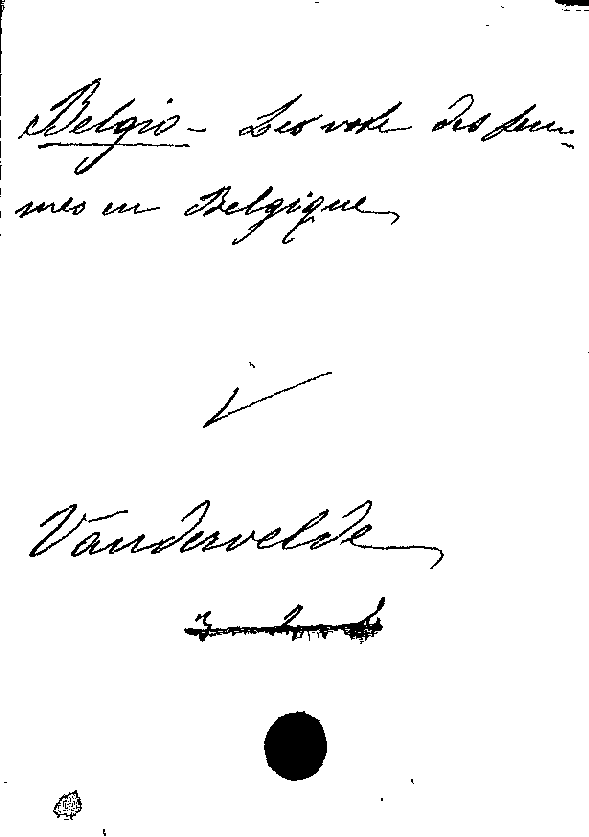 Belgio - Les vote des fem-
mes en Belgique
Vandervelde